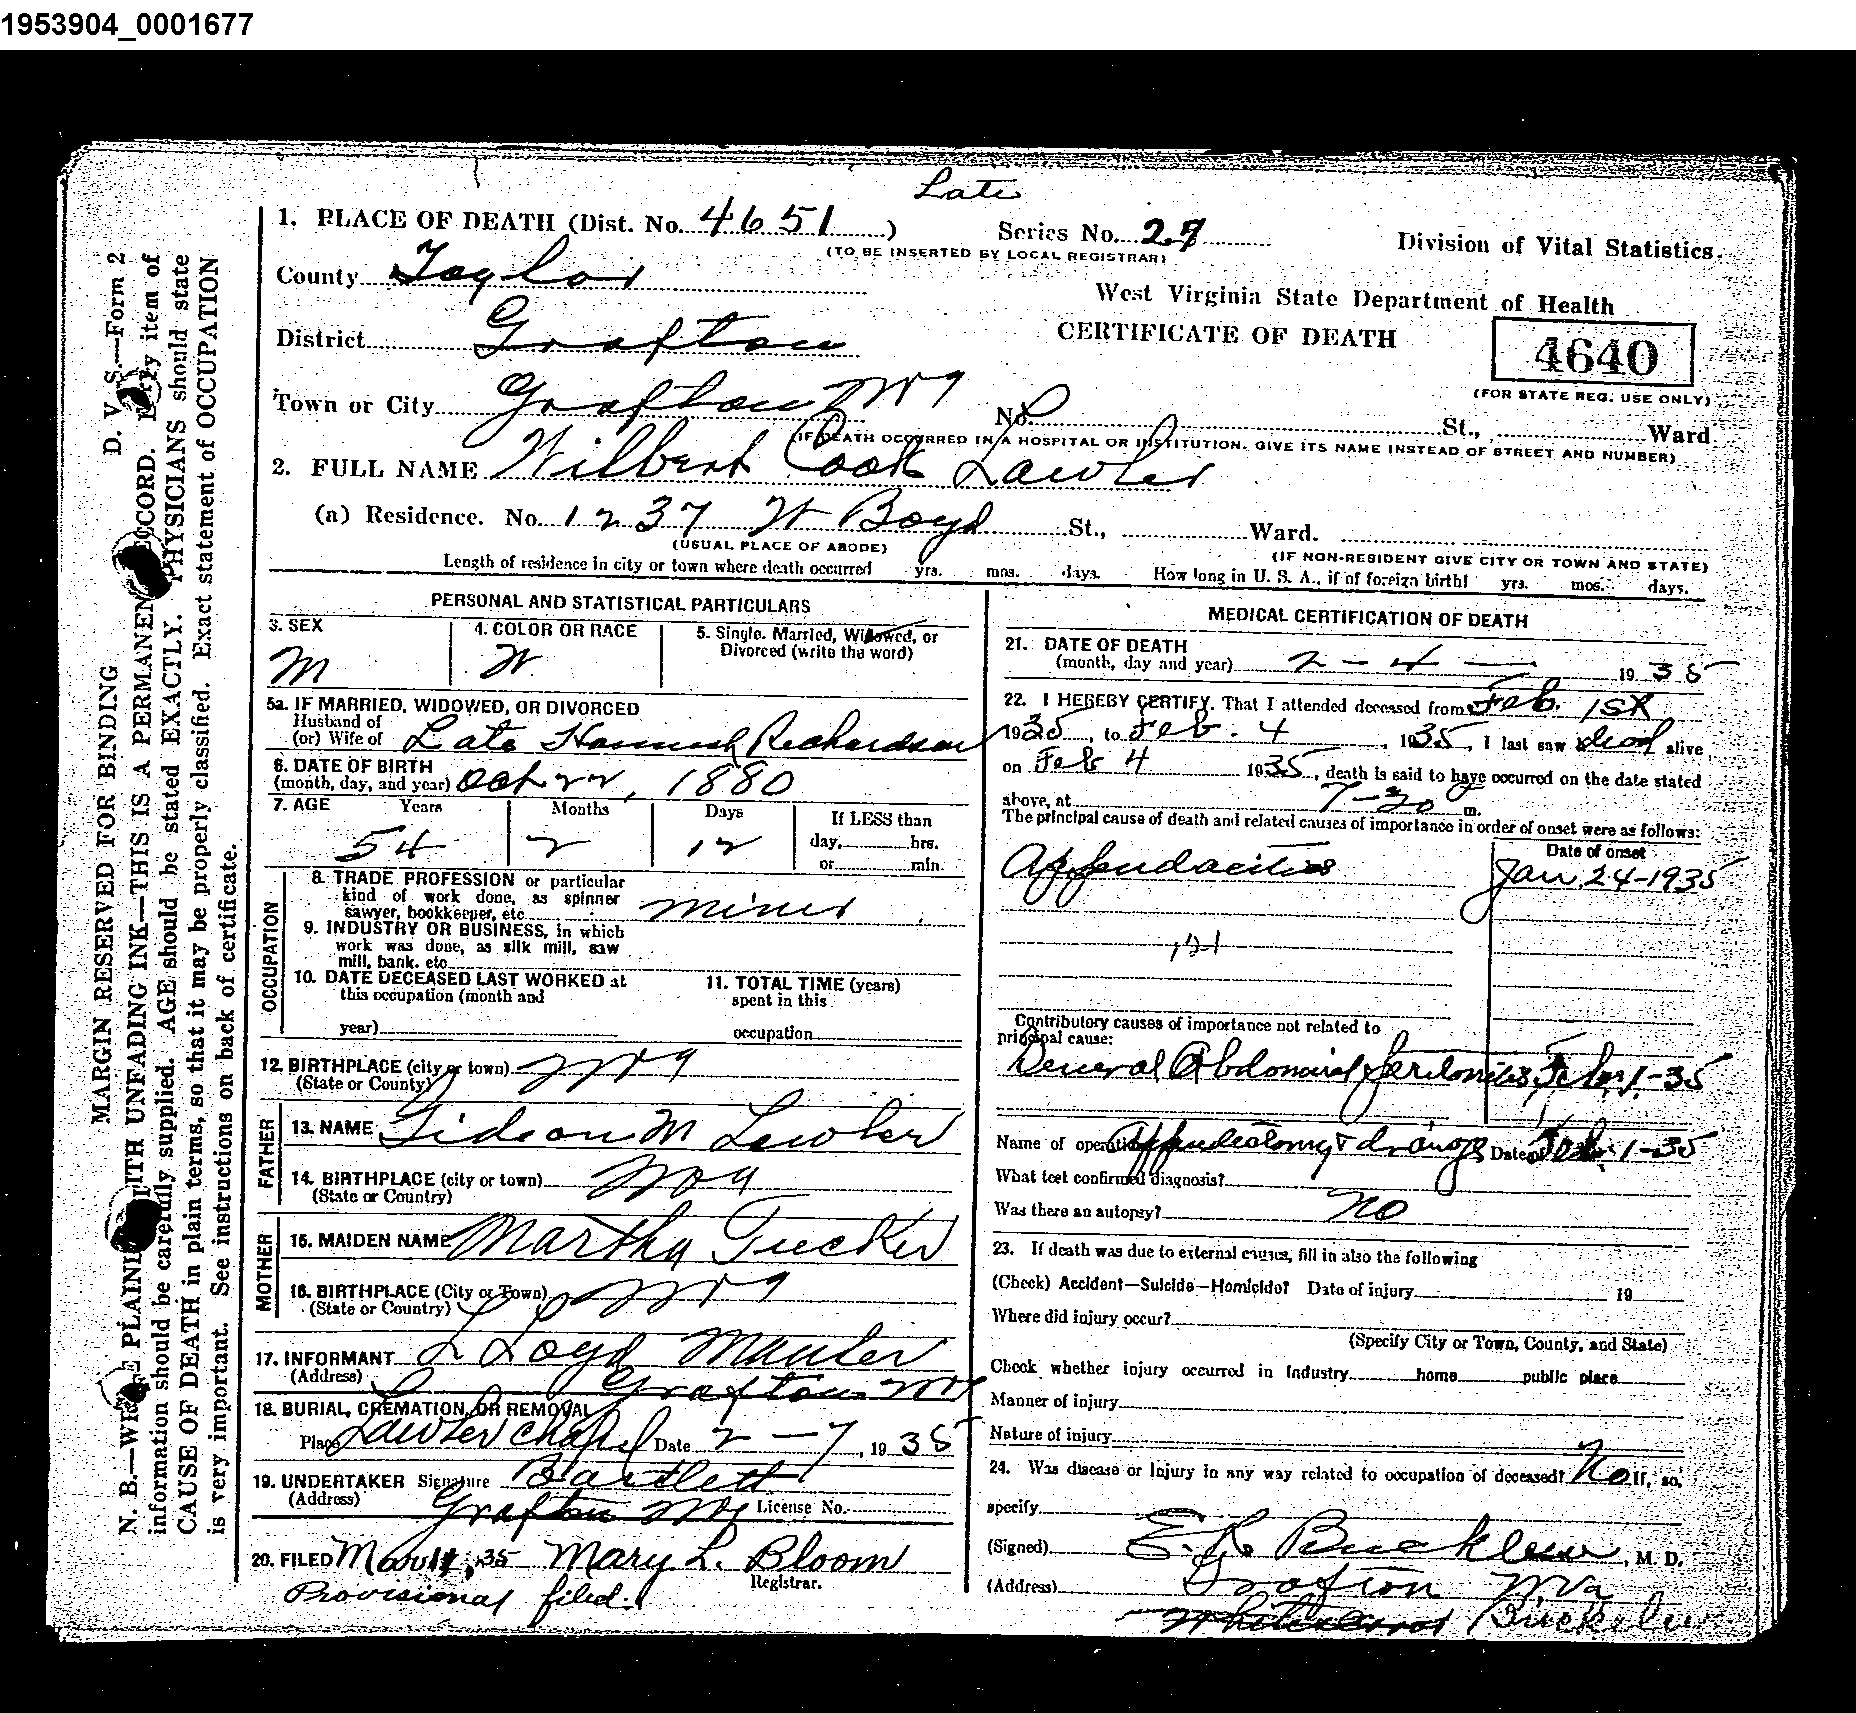 1953904_0001677
Late
1. PLACE OF DEATH (Dist. No. 4651 ) Series No. 27 Division of Vital Statistics.
(TO BE INSERTED BY LOCAL REGISTRAR)
County Taylor
West Virginia State Department of Health
District Grafton CERTIFICATE OF DEATH 4640
(FOR STATE REG. USE ONLY)
Town or City Grafton WVa No. St., Ward
(IF DEATH OCCURRED IN A HOSPITAL OR INSTITUTION. GIVE ITS NAME INSTEAD OF STREET AND NUMBER)
2. FULL NAME Wilbert Cook Lawler
(a) Residence. No. 1237 W Boyd St., Ward.
(USUAL PLACE OF ABODE) (IF NON-RESIDENT GIVE CITY OR TOWN AND STATE)
Length of residence in city or town where death occurred yrs. mos. days. How long in U. S. A., if of foreign birth! yrs. mos. days.
PERSONAL AND STATISTICAL PARTICULARS
3. SEX 4. COLOR OR RACE 5. Single. Married, Widowed, or
Divorced (write the word)
M W
5a. IF MARRIED, WIDOWED, OR DIVORCED
Husband of
(or) Wife of Late Hannah Richardson
6. DATE OF BIRTH
(month, day, and year) Oct 22, 1880
7. AGE Years Months Days If LESS than
54 2 12 day, hrs.
or min.
OCCUPATION
8. TRADE PROFESSION or particular
kind of work done, as spinner
sawyer, bookkeeper, etc. Miner
9. INDUSTRY OR BUSINESS, in which
work was done, as silk mill, saw
mill, bank. etc.
10. DATE DECEASED LAST WORKED at 11. TOTAL TIME (years)
this occupation (month and spent in this
year) occupation
12. BIRTHPLACE (city or town) WVa
(State or County)
FATHER
13. NAME Gideon M Lawler
14. BIRTHPLACE (city or town) WVa
(State or Country)
MOTHER
15. MAIDEN NAME Martha Tucker
16. BIRTHPLACE (City or Town) WVa
(State or Country)
17. INFORMANT Lloyd Mauler
(Address) Grafton WVa
18. BURIAL, CREMATION, OR REMOVAL
Place Lawler Chapel Date 2-7, 1935
19. UNDERTAKER Signature Bartlett
(Address) Grafton WVa License No.
20. FILED Mar 11, 35 Mary L. Bloom
Registrar.
Provisional filed.
MEDICAL CERTIFICATION OF DEATH
21. DATE OF DEATH
(month, day and year) 2-4- 1935
22. I HEREBY CERTIFY. That I attended deceased from Feb. 1st
1935, to Feb. 4, 1935, I last saw dead alive
on Feb 4 1935, death is said to have occurred on the date stated
above, at 7-20 m.
The principal cause of death and related causes of importance in order of onset were as follows:
Date of onset
Appendacities Jan 24-1935
121
Contributory causes of importance not related to
principal cause:
General Abdominal peritonitis, Feb. 1-35
Name of operation Appendectomy & drainage Date of Feb. 1-35
What test confirmed diagnosis?
Was there an autopsy? no
23. If death was due to external causes, fill in also the following
(Check) Accident—Suicide—Homicide? Date of injury 19
Where did injury occur?
(Specify City or Town, County, and State)
Check whether injury occurred in Industry home public place
Manner of injury
Nature of injury
24. Was disease or Injury in any way related to occupation of deceased? No If, so,
specify
(Signed) E. R Bucklew, M. D.
(Address) Grafton WVa
Bucklew
MARGIN RESERVED FOR BINDING D. V. S.—Form 2
N. B.—WRITE PLAINLY WITH UNFADING INK—THIS IS A PERMANENT RECORD. Every item of
information should be carefully supplied. AGE should be stated EXACTLY. PHYSICIANS should state
CAUSE OF DEATH in plain terms, so that it may be properly classified. Exact statement of OCCUPATION
is very important. See instructions on back of certificate.